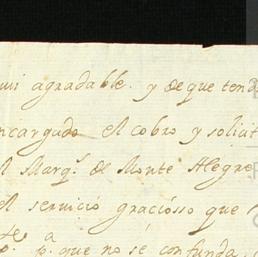 mui agradable. y de que tend
ncargado el cobro y solicit
l Marqs. de Monte Alegre
el servicio graciosso que
te. a p. que no se confunda,